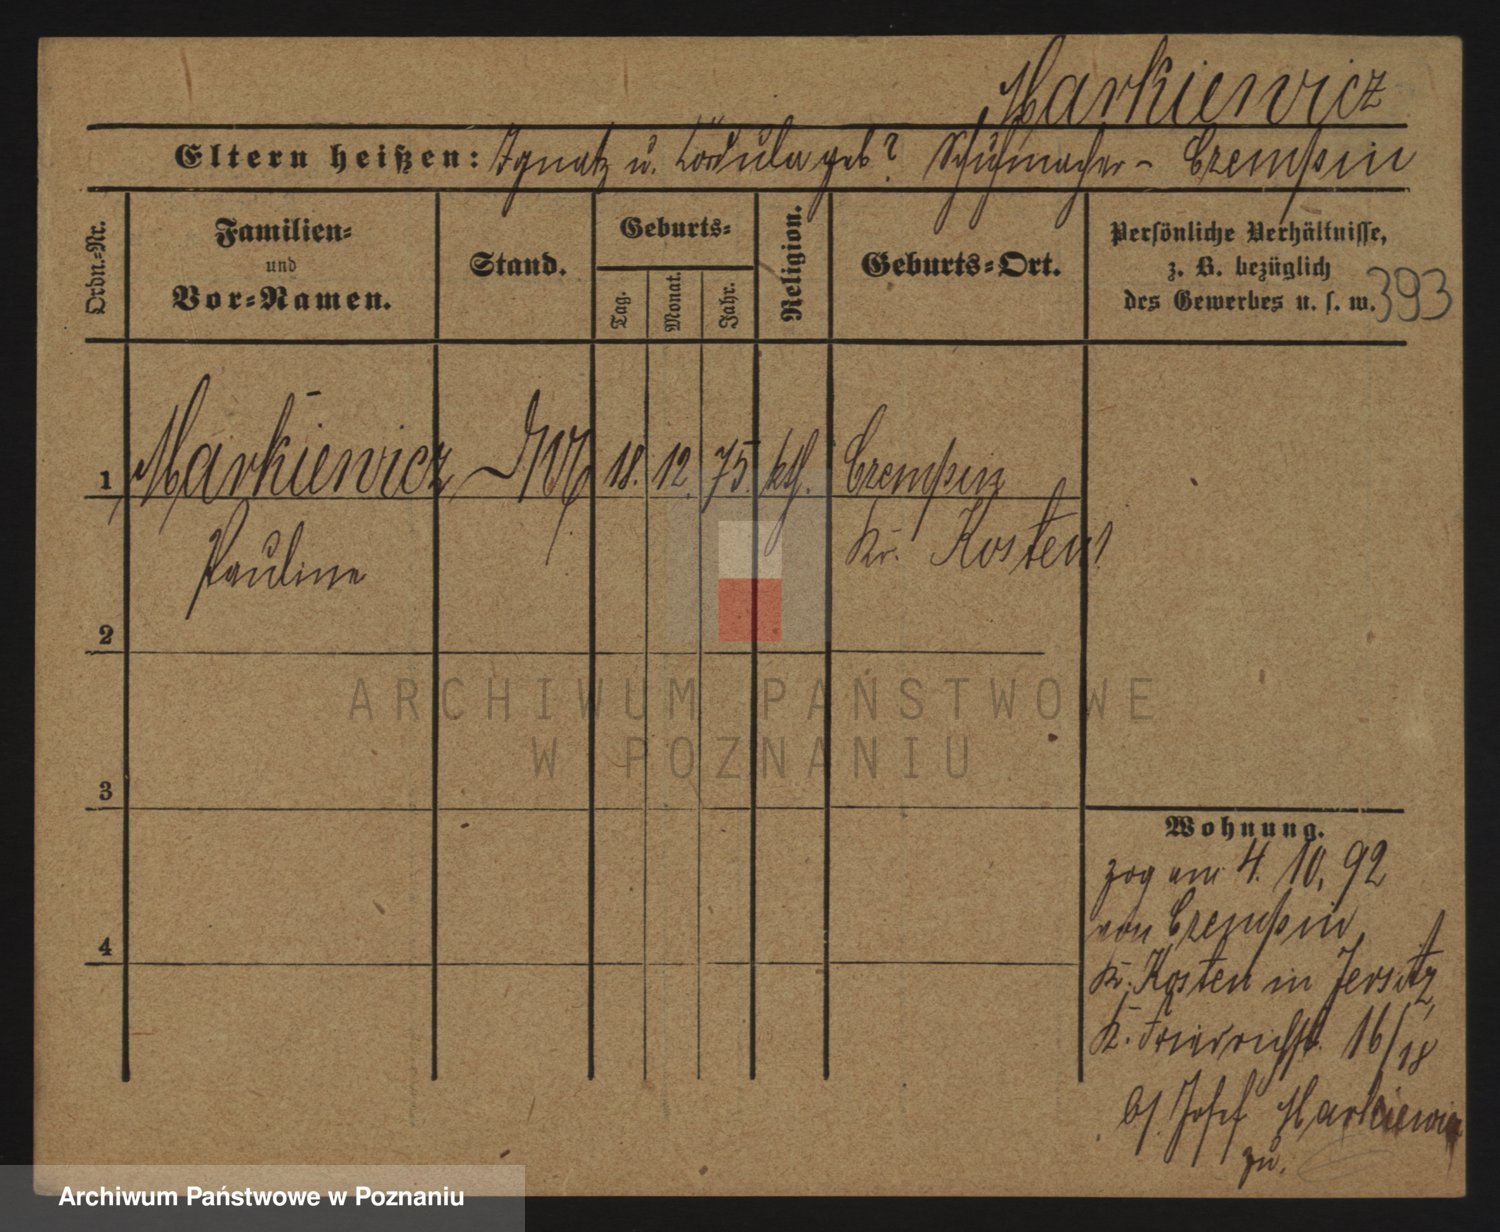 Markiewicz
Eltern heißen: Ignatz u. Cordula geb? Schuhmacher - Czempin
Ordn.-Nr.
Familien-
und
Vor-Namen.
Stand.
Geburts-
Tag.
Monat.
Jahr.
Religion.
Geburts-Ort.
Persönliche Verhältnisse,
z. B. bezüglich
des Gewerbes u. s. w.
393
1 Markiewicz 18. 12. 75. kth. Czempin
Pauline Kr. Kosten
2
3
4
ARCHIWUM PAŃSTWOWE
W POZNANIU
Wohnung.
zog am 4. 10. 92
von Czempin
Kr. Kosten in Jersitz,
K. Friedrichstr. 16/18
b/. Josef Markiewicz
zu.
Archiwum Państwowe w Poznaniu